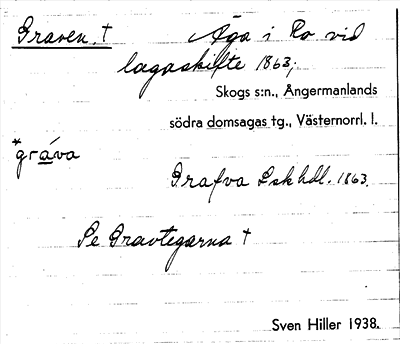 Graven. † Äga i Ro vid
lagaskifte 1863;
Skogs s:n., Ångermanlands
södra domsagas tg., Västernorrl. l.
*gráva
Grafva Lskhdl. 1863.
Se Gravtegarna †
Sven Hiller 1938.